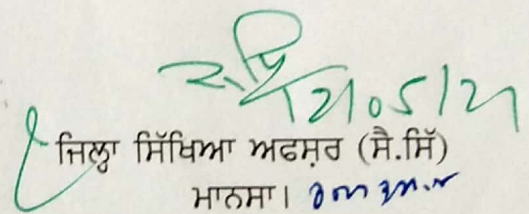 21/05/21
ਜਿਲ੍ਹਾ ਸਿੱਖਿਆ ਅਫਸ਼ਰ (ਸੈ.ਸਿੱ)
ਮਾਨਸਾ।